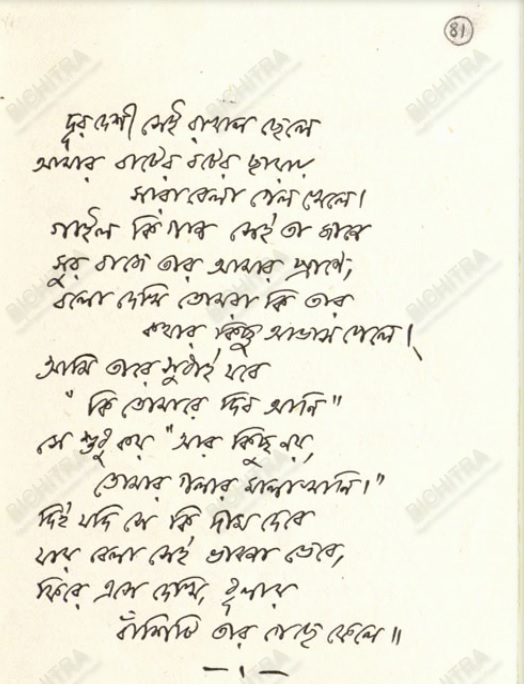 81
দূরদেশী সেই রাখাল ছেলে
আমার বাটের বটের ছায়ায়
সারা বেলা গেল খেলে।
গাইল কি গান সেই তা জানে
সুর বাজে তার আমার প্রাণে,
বলো দেখি তোমরা কি তার
কথার কিছু আভাস পেলে।
আমি তারে সুধাই যবে
"কি তোমারে দিব আনি"
সে শুধু কয় "আর কিছু নয়,
তোমার গলার মালাখানি।"
দিই যদি সে কি দাম দেবে
যায় বেলা সেই ভাবনা ভেবে,
ফিরে এসে দেখি, ধূলায়
বাঁশিটি তার গেছে ফেলে॥
BICHITRA